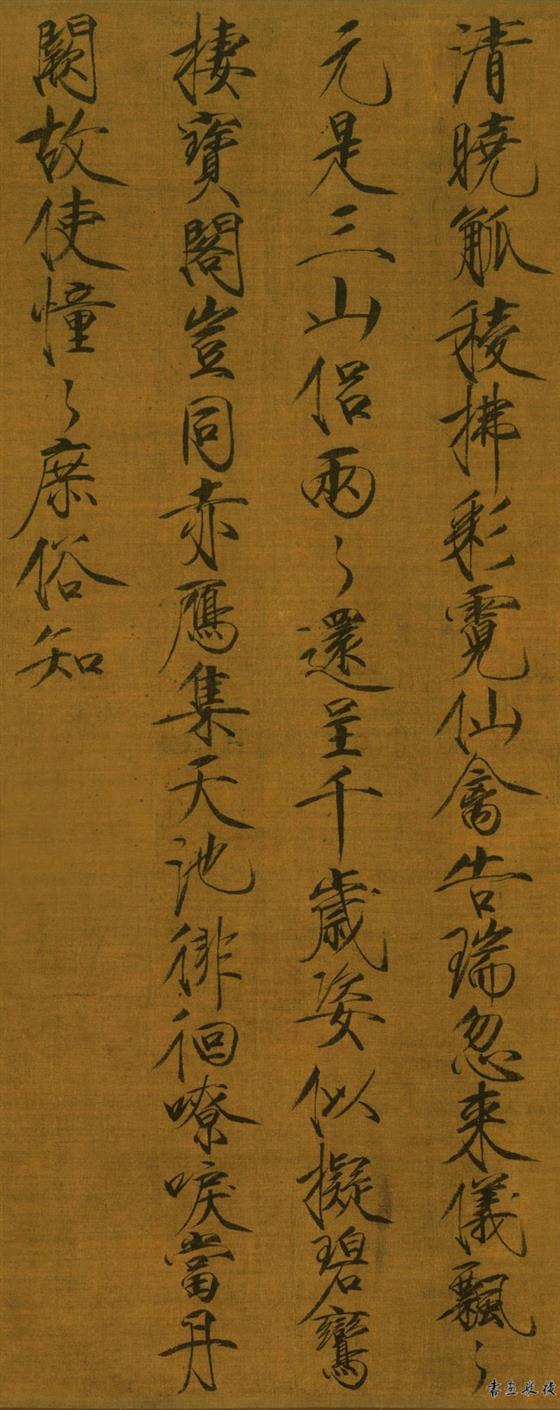 清曉觚稜拂彩霓仙禽告瑞忽来儀飄〻
元是三山侣兩〻還呈千歲姿似擬碧鸞
棲寶閣豈同赤鴈集天池徘徊嘹唳當丹
闕故使憧〻庶俗知